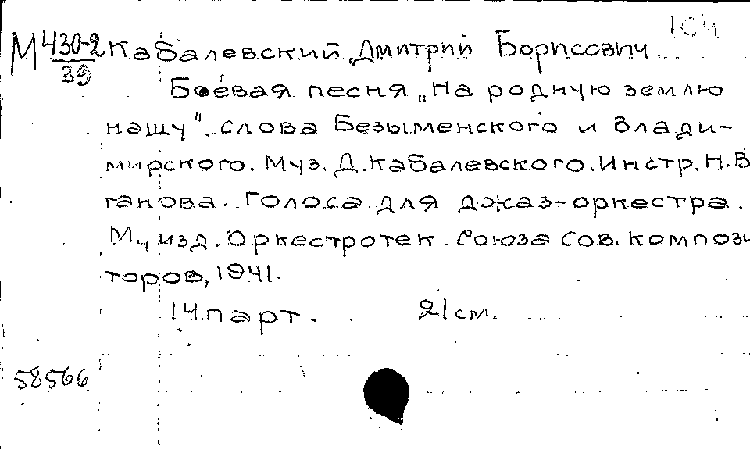 104
М 430-2 Кабалевский, Дмитрий Борисович
39
Боевая песня „На родную землю
нашу". Слова Безыменского и Влади-
мирского. Муз. Д. Кабалевского. Инстр. Н. В
ганова. Голоса для джаз-оркестра.
М., изд. Оркестротек. Союза Сов. компози
торов, 1941.
14 парт. 21 см.
58566